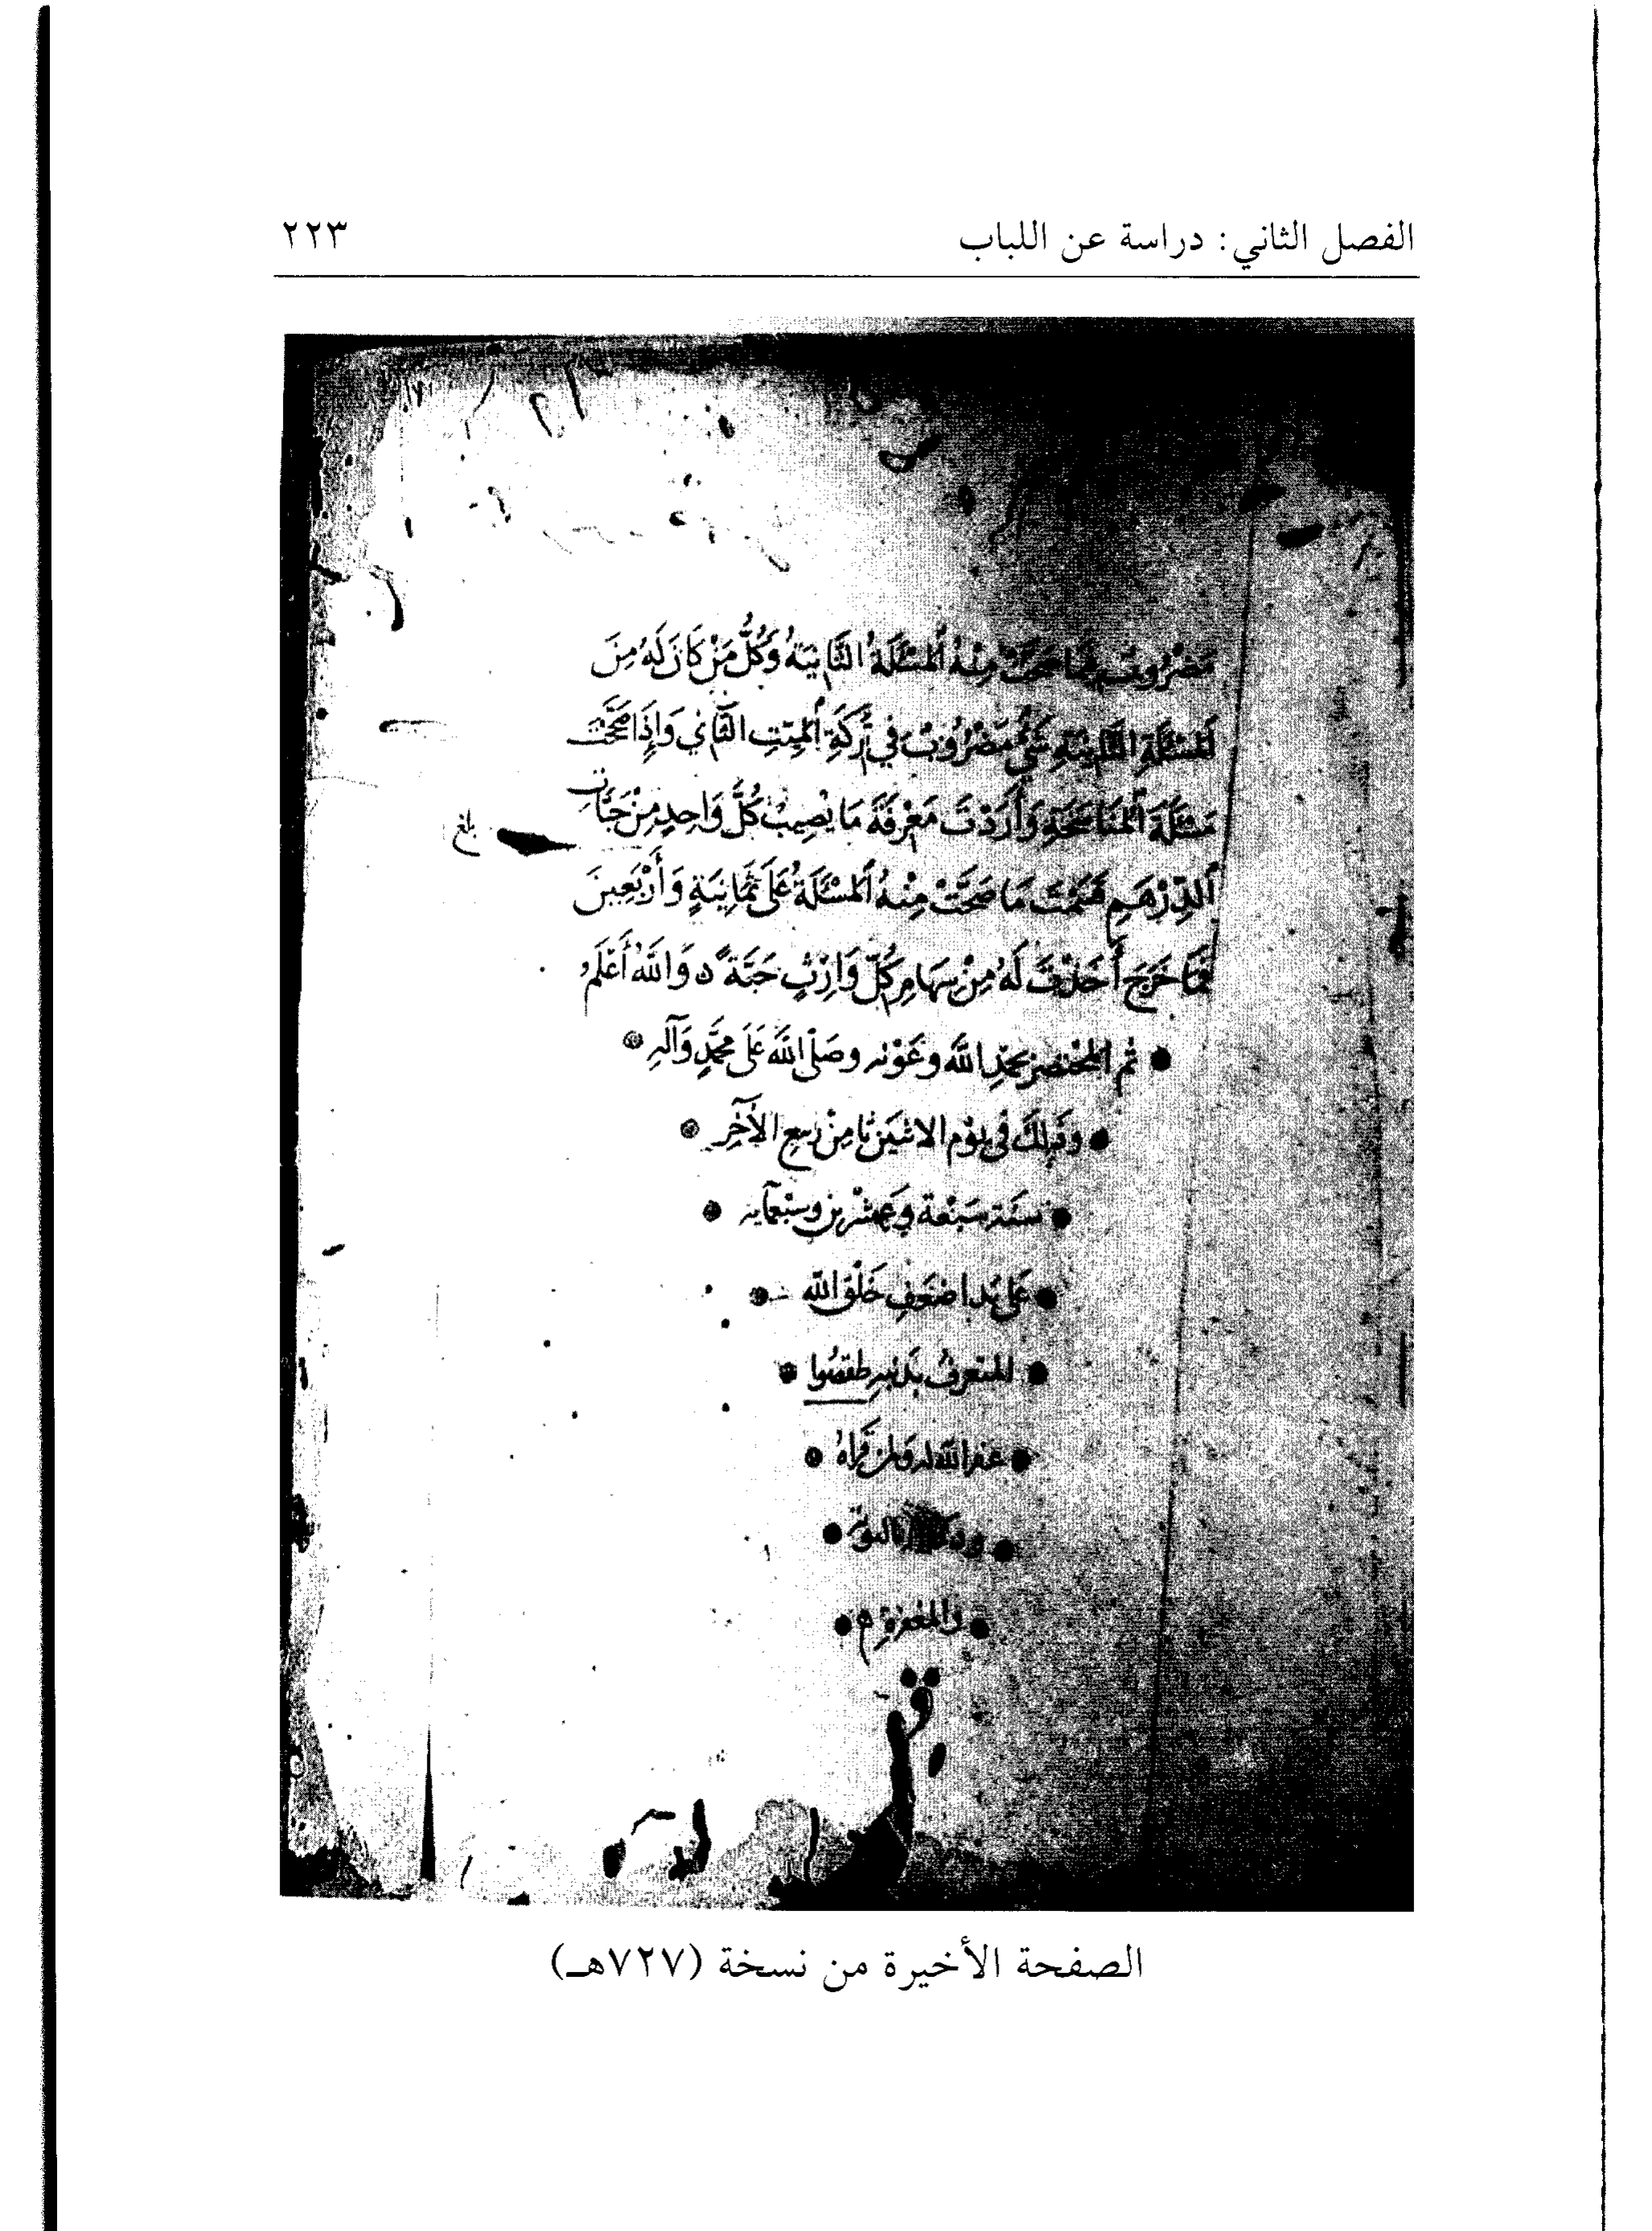 الفصل الثاني: دراسة عن اللباب
٢٢٣
مَضْرُوبٌ فيما صَحَّتْ مِنْهُ اَلمَسْئَلَةُ الثَّانِيَةُ وَكُلُّ مَنْ كَانَ لَهُ مِنَ
اَلمَسْئَلَةِ الثَّانِيَةِ شَيْءٌ مَضْرُوبٌ في تَرِكَةِ اَلمَيِّتِ الثَّاني وَإِذَا صَحَّحْتَ
مَسْئَلَةَ اَلمُنَاسَخَةِ وَأَرَدْتَ مَعْرِفَةَ مَا يُصِيبُ كُلَّ وَاحِدٍ مِنْ حَبَّاتِ
بلغ
اَلدِّرْهَمِ قَسَمْتَ مَا صَحَّتْ مِنْهُ اَلمَسْئَلَةُ عَلَى ثَمَانِيَةٍ وَأَرْبَعِينَ
فَمَا خَرَجَ أَخَذْتَ لَهُ مِنْ سِهَامِ كُلِّ وَارِثٍ حَبَّةً ه وَاللهُ أَعْلَمُ
تم المختصر بحمدِ الله وعَوْنه وصَلى الله عَلَى محمَّدٍ وَآلهِ
وذَلِكَ في يوْم الاثنَين ثامِنْ ربيع الآخِر
سنَة سَبْعَة وعِشْرين وسَبْعمايه
عَلى يَد اضعَفِ خَلْق الله
المتعرف بذنبهِ طقصُوا
غفر الله له ولمن قَراهُ
بالتوبَة
والمغفرة م
الصفحة الأخيرة من نسخة (٧٢٧هـ)